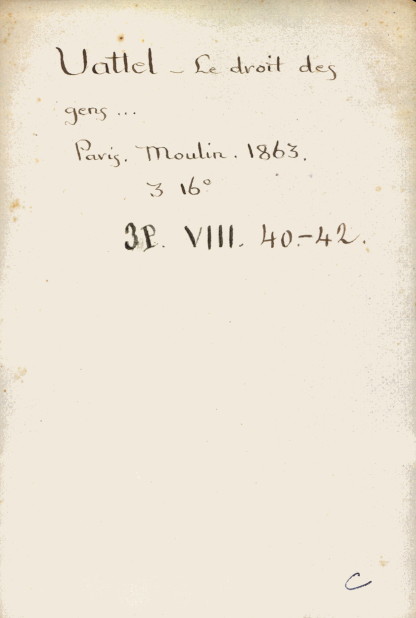 Vattel - Le droit des
gens...
Paris. Moulin. 1863.
3 16°
3P. VIII. 40.-42.
C